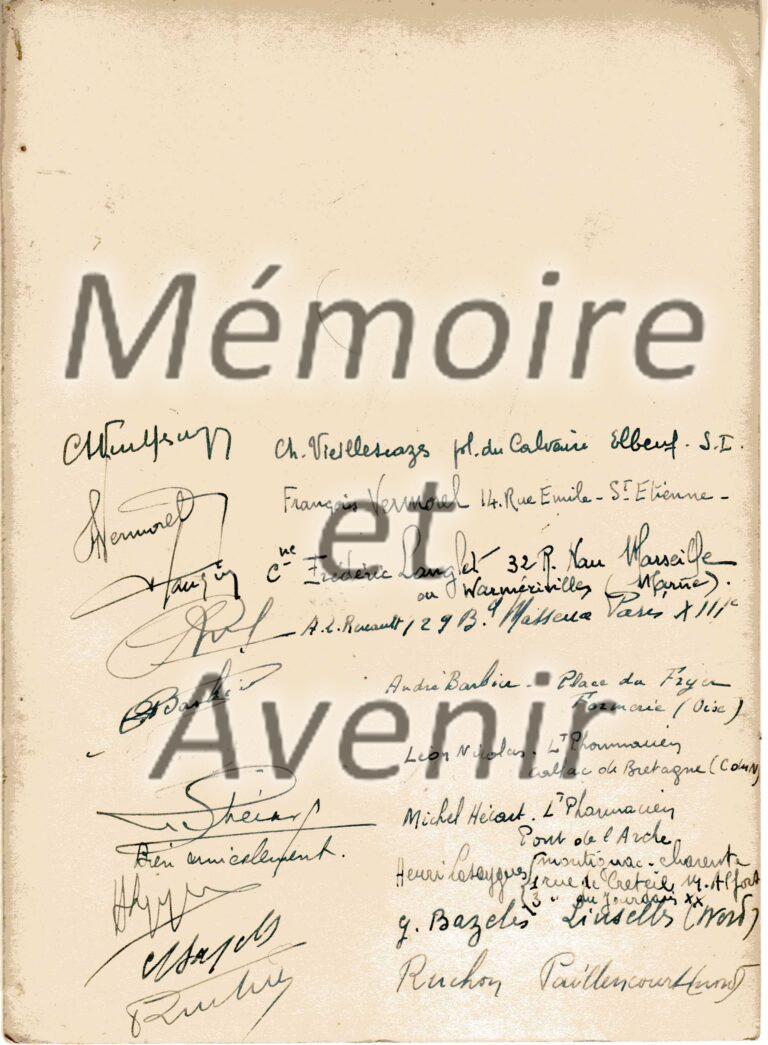 Mémoire
et
Avenir
Ch. Vieillescazes pl. du Calvaire Elbeuf. S.I.
Vermorel François Vermorel 14. Rue Emile - St Etienne -
Cne Frédéric Langlet 32 R. Nau Marseille
ou Warmérivilles (Marne).
A.L. Renault 129 Bd Massena Paris XIIIe
Barbier André Barbier - Place du
Formerie (Oise)
Léon Nicolas. Lt Pharmacien
Callac de Bretagne (
Michel Hécart. Lt Pharmacien
Pont de l'Arche
Bien amicalement.
Henri Montignac - Charente
1 rue de Créteil M. Alfort
3 " du Jourdain XX
g. Bazelis Linselles (Nord)
Ruchon Paillencourt (nord)